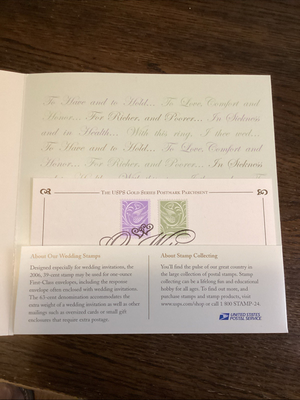 To Have and to Hold... To Love, Comfort and
Honor... For Richer, and Poorer... In Sickness
and in Health... With this ring, I thee wed...
To Have and to Hold... To Love, Comfort and
Honor... For Richer, and Poorer... In Sickness
THE USPS GOLD SERIES POSTMARK PARCHMENT
About Our Wedding Stamps
Designed especially for wedding invitations, the
2006, 39-cent stamp may be used for one-ounce
First-Class envelopes, including the response
envelope often enclosed with wedding invitations.
The 63-cent denomination accommodates the
extra weight of heavier invitations as well as other
mailings such as oversized cards or small gift
enclosures that require extra postage.
About Stamp Collecting
You'll find the pulse of our great country in
the large collection of postal stamps. Stamp
collecting can be a lifelong fun and educational
hobby for all ages. To find out more, and
purchase stamps and stamp products, visit
www.usps.com/shop or call 1 800 STAMP-24
UNITED STATES
POSTAL SERVICE